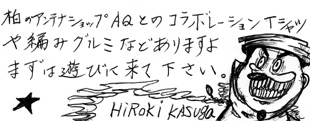 柏のアンテナショップAQとのコラボレーションTシャツ
や編みグルミなどありますよ
まずは遊びに来て下さい。
HiROKi KASUGA